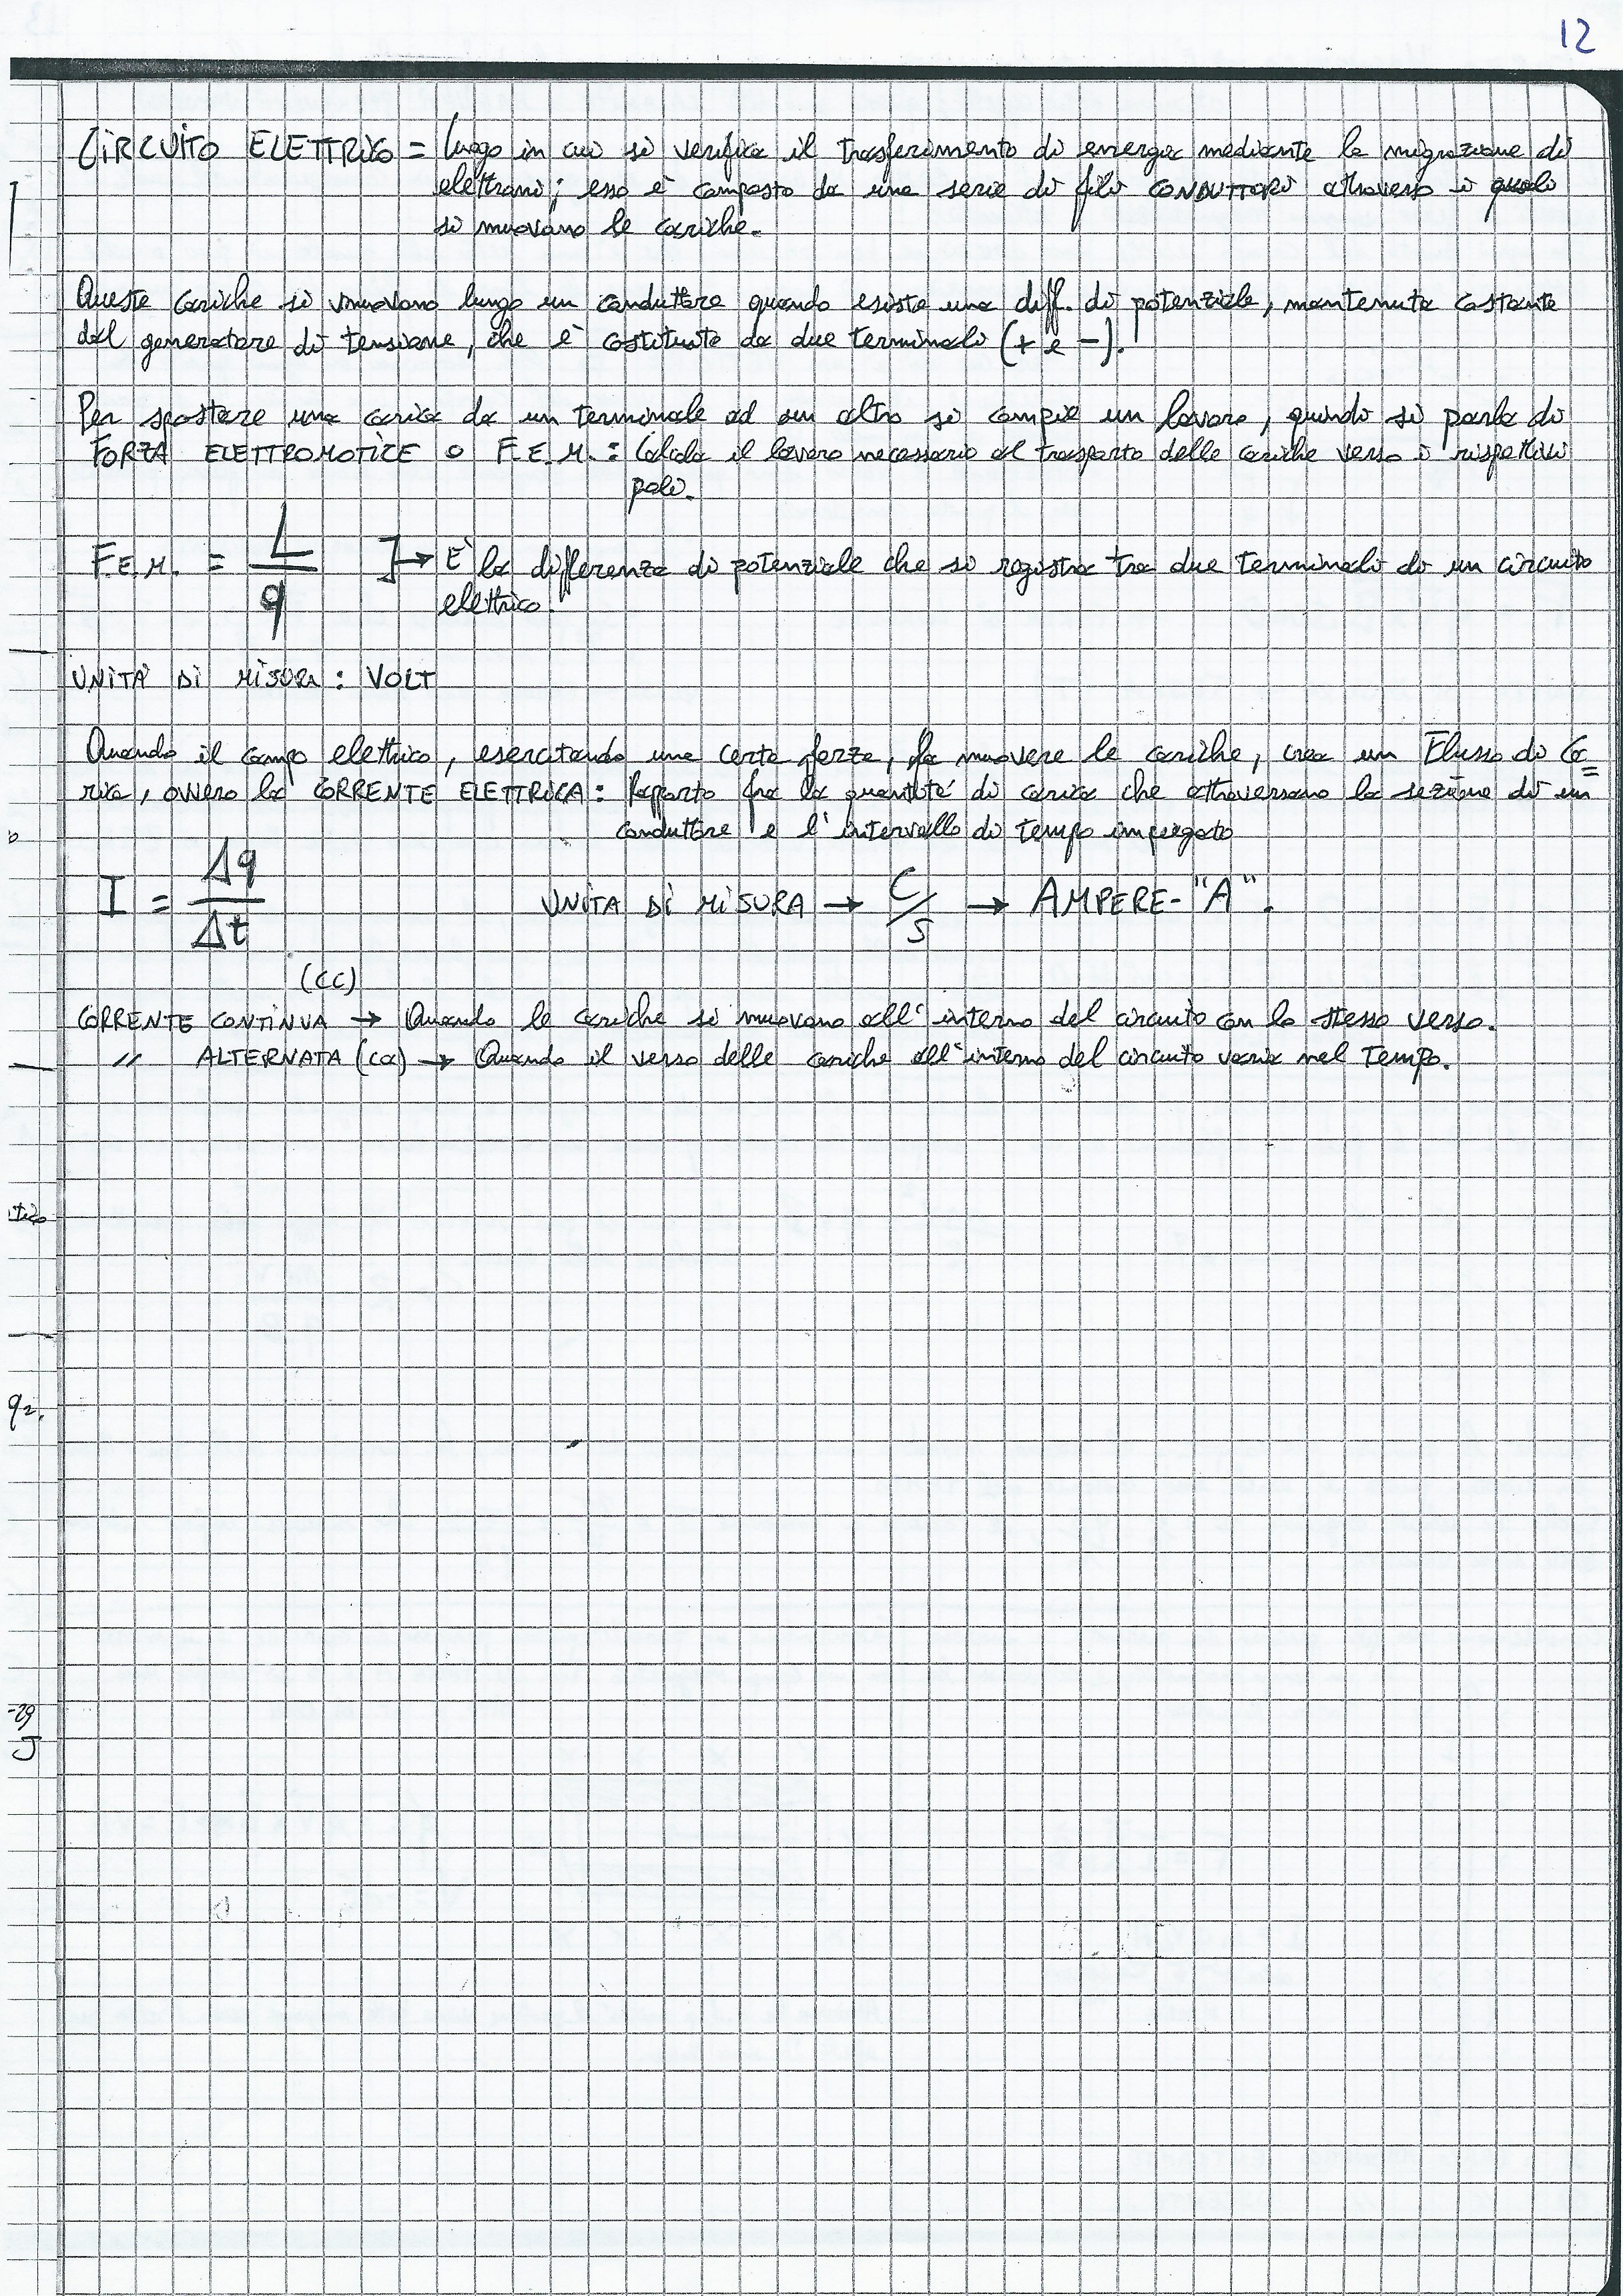 12
CIRCUITO ELETTRICO = luogo in cui si verifica il trasferimento di energia mediante la migrazione di
elettroni; esso è composto da una serie di fili CONDUTTORI attraverso i quali
si muovono le cariche.
Queste cariche si muovono lungo un conduttore quando esiste una diff. di potenziale, mantenuta costante
dal generatore di tensione, che è costituito da due terminali (+ e -).
Per spostare una carica da un terminale ad un altro si compie un lavoro, quindi si parla di
FORZA ELETTROMOTICE o F.E.M. : Calcola il lavoro necessario al trasporto delle cariche verso i rispettivi
poli.
F.E.M. = L/q ]→ È la differenza di potenziale che si registra tra due terminali di un circuito
elettrico.
UNITA' DI MISURA : VOLT
Quando il campo elettrico, esercitando una certa forza, fa muovere le cariche, crea un Flusso di Ca=
rica, ovvero la CORRENTE ELETTRICA : Rapporto fra la quantità di carica che attraversano la sezione di un
conduttore e l'intervallo di tempo impiegato
I = Δq/Δt UNITA DI MISURA → C/s → AMPERE-"A".
(CC)
CORRENTE CONTINUA → Quando le cariche si muovono all'interno del circuito con lo stesso verso.
// ALTERNATA (ca) → Quando il verso delle cariche all'interno del circuito varia nel Tempo.
q2.
-29
J